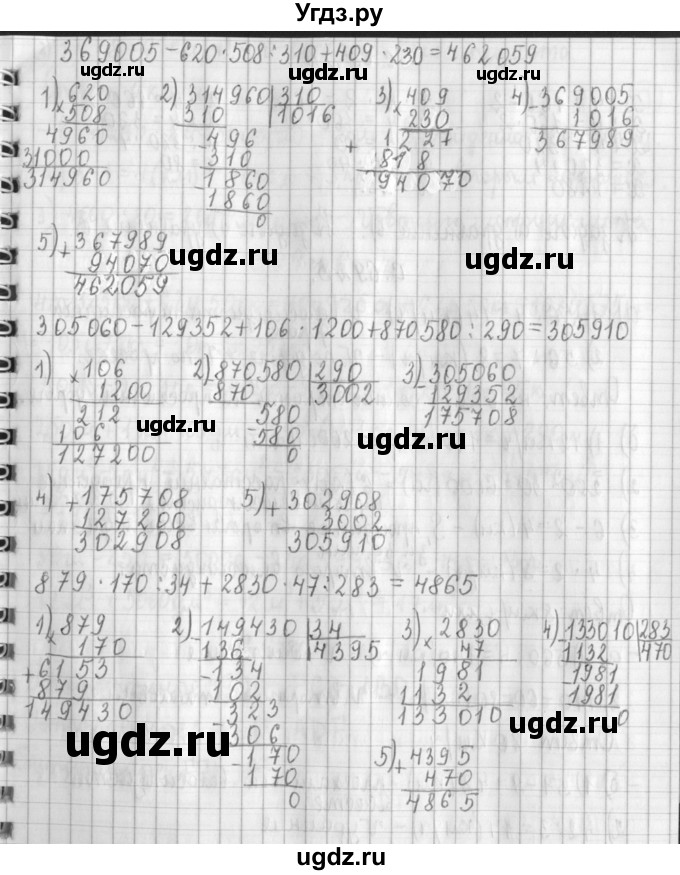 Угдз.ру
369005-620·508:310+409·230=462059
ugdz.ru ugdz.ru ugdz.ru ugdz.ru
1) 620 2) 314960 310 3) 409 4) 369005
× 508 310 1016 × 230 - 1016
4960 - 496 + 1227 367989
31000 310 818
314960 - 1860 94070
1860
0
5) + 367989
94070
462059
ugdz.ru ugdz.ru
305060-129352+106·1200+870580:290=305910
1) × 106 2) 870580 290 3) 305060
1200 - 870 3002 - 129352
212 580 175708
106 - 580
127200 0
ugdz.ru ugdz.ru
4) + 175708 5) + 302908
127200 3002
302908 305910
879·170:34+2830·47:283=4865
1) 879 2) 149430 34 3) 2830 4) 133010 283
× 170 - 136 4395 × 47 - 1132 470
+ 6153 - 134 1981 - 1981
879 102 1132 1981
149430 - 323 133010 0
306
- 170
170
0
ugdz.ru ugdz.ru ugdz.ru
5) + 4395
470
4865
ugdz.ru ugdz.ru
ugdz.ru